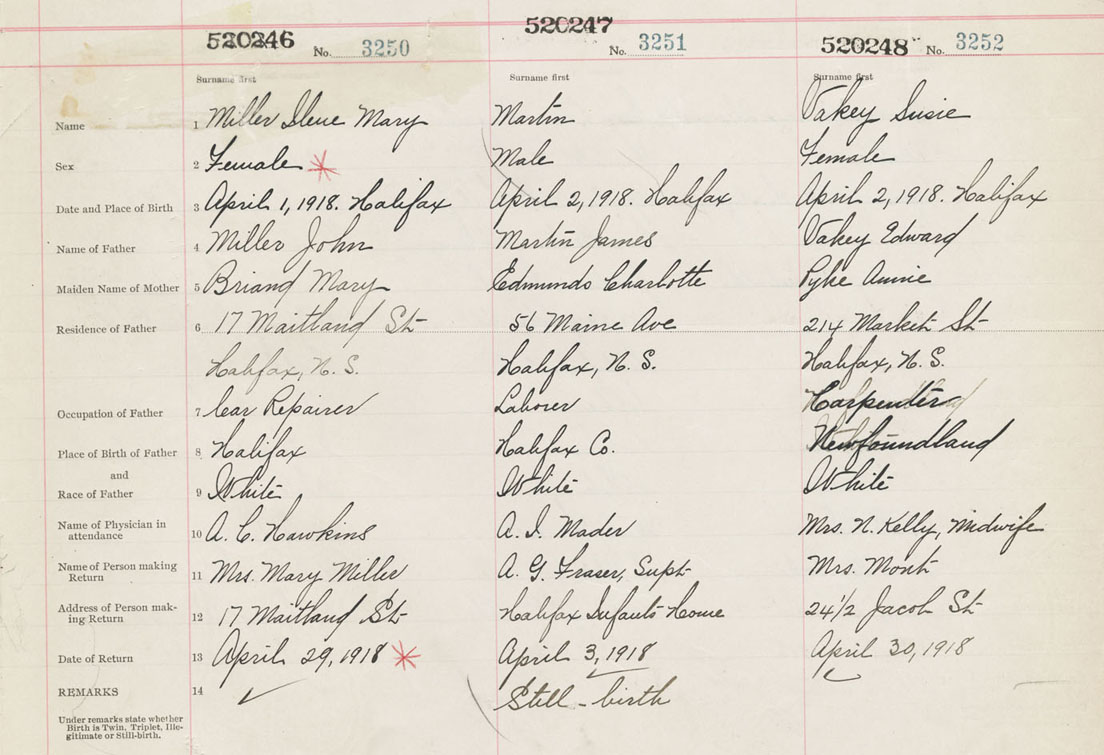 520246 No. 3250 520247 No. 3251 520248 No. 3252
Surname first Surname first Surname first
Name 1 Miller Ilene Mary Martin Vakey Susie
Sex 2 Female Male Female
Date and Place of Birth 3 April 1, 1918. Halifax April 2, 1918. Halifax April 2, 1918. Halifax
Name of Father 4 Miller John Martin James Vakey Edward
Maiden Name of Mother 5 Briand Mary Edmunds Charlotte Pyke Annie
Residence of Father 6 17 Maitland St 56 Maine Ave 214 Market St
Halifax, N. S. Halifax, N. S. Halifax, N. S.
Occupation of Father 7 Car Repairer Laborer Carpenter
Place of Birth of Father 8 Halifax Halifax Co. Newfoundland
and
Race of Father 9 White White White
Name of Physician in
attendance 10 A. C. Hawkins A. I. Mader Mrs. N. Kelly, Midwife
Name of Person making
Return 11 Mrs. Mary Miller A. G. Fraser, Supt Mrs. Mont
Address of Person mak-
ing Return 12 17 Maitland St Halifax Infants Home 24 1/2 Jacob St
Date of Return 13 April 29, 1918 April 3, 1918 April 30, 1918
REMARKS 14 Still-birth
Under remarks state whether
Birth is Twin, Triplet, Ille-
gitimate or Still-birth.